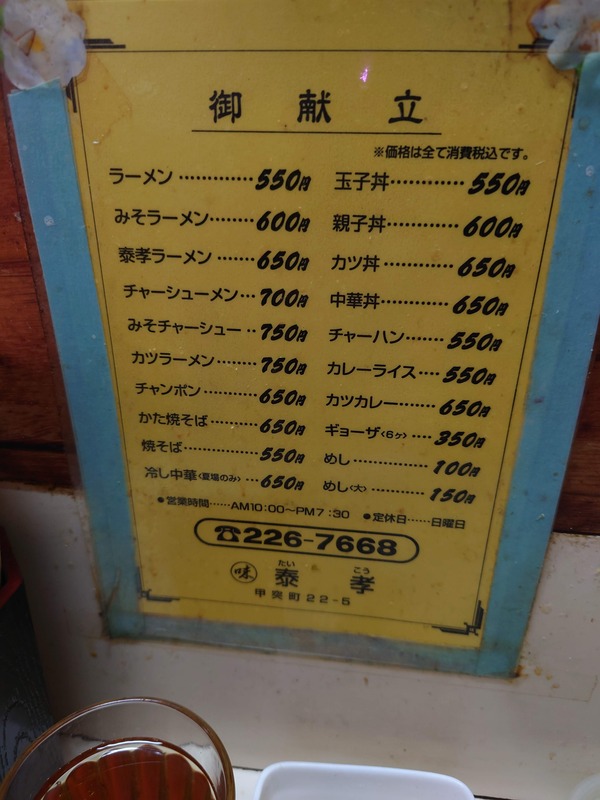 御献立
※価格は全て消費税込です。
ラーメン…………550円
みそラーメン……600円
泰孝ラーメン……650円
チャーシューメン…700円
みそチャーシュー…750円
カツラーメン……750円
チャンポン………650円
かた焼そば………650円
焼そば……………550円
冷し中華<夏場のみ>…650円
玉子丼…………550円
親子丼…………600円
カツ丼…………650円
中華丼…………650円
チャーハン……550円
カレーライス…550円
カツカレー……650円
ギョーザ<6ヶ>…350円
めし……………100円
めし<大>………150円
●営業時間……AM10:00〜PM7:30 ●定休日……日曜日
☎226-7668
味 泰孝
たい こう
甲突町22-5